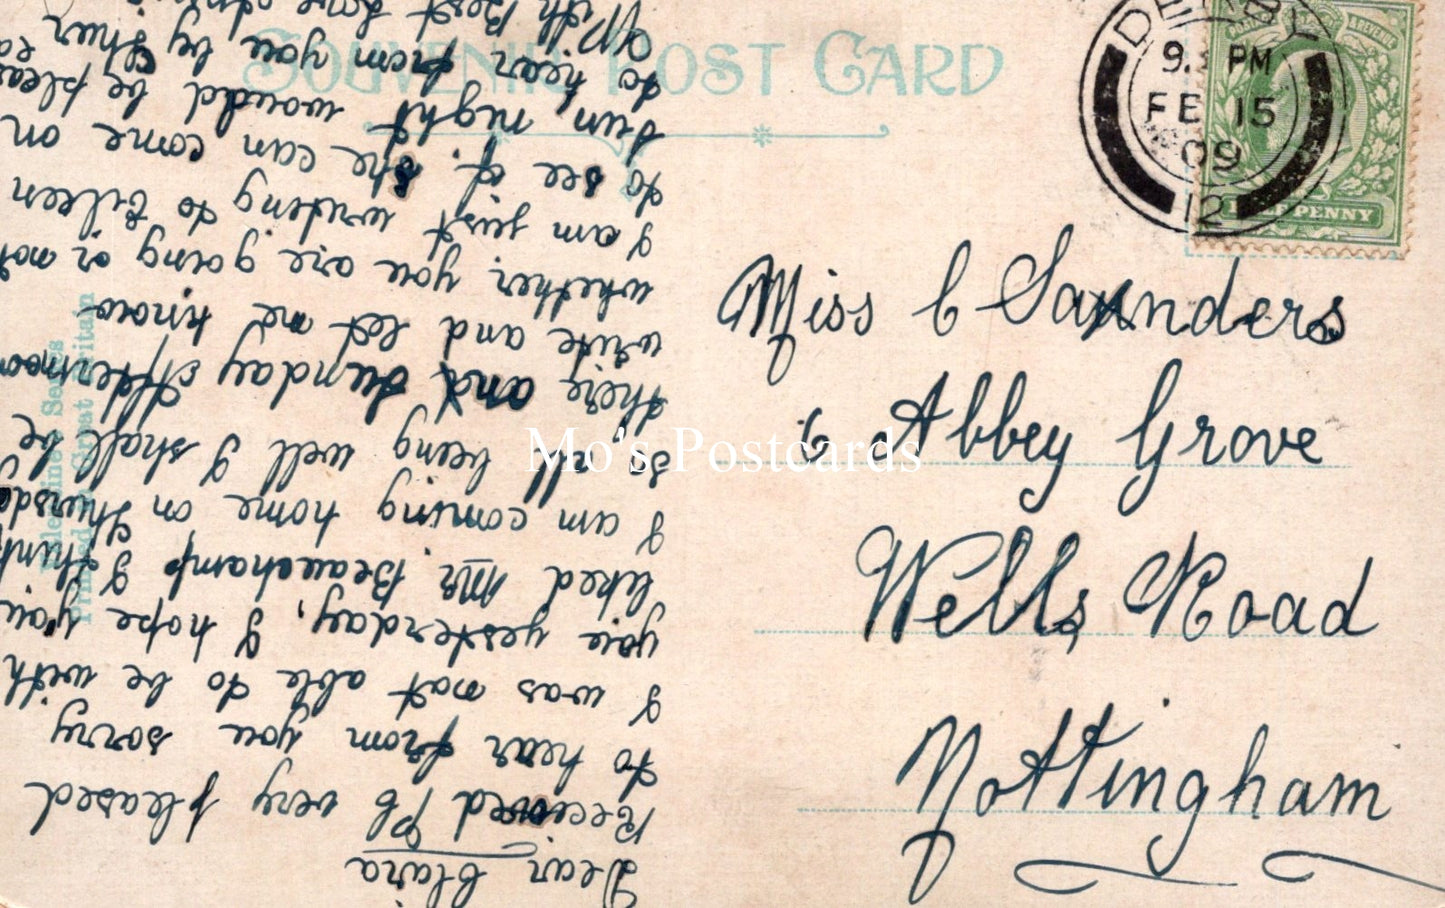 SOUVENIR POST CARD
DERBY
9. PM
FE 15
09
12
HALFPENNY
Miss C Saunders
6 Abbey Grove
Wells Road
Nottingham
Mo's Postcards
Dear Clara
Received Pc very pleased
to hear from you sorry
I was not able to be with
you yesterday, I hope you
liked Mr. Beauchamp I think
I am coming home on Thursday
so all being well I shall be
there and Sunday Afternoon
write and let me know
whether you are going or not
I am just writing to Eileen
to see if she can come on
Sun, night would be pleas
to hear from you by Thur
With Best Love
Series
Printed at Britain